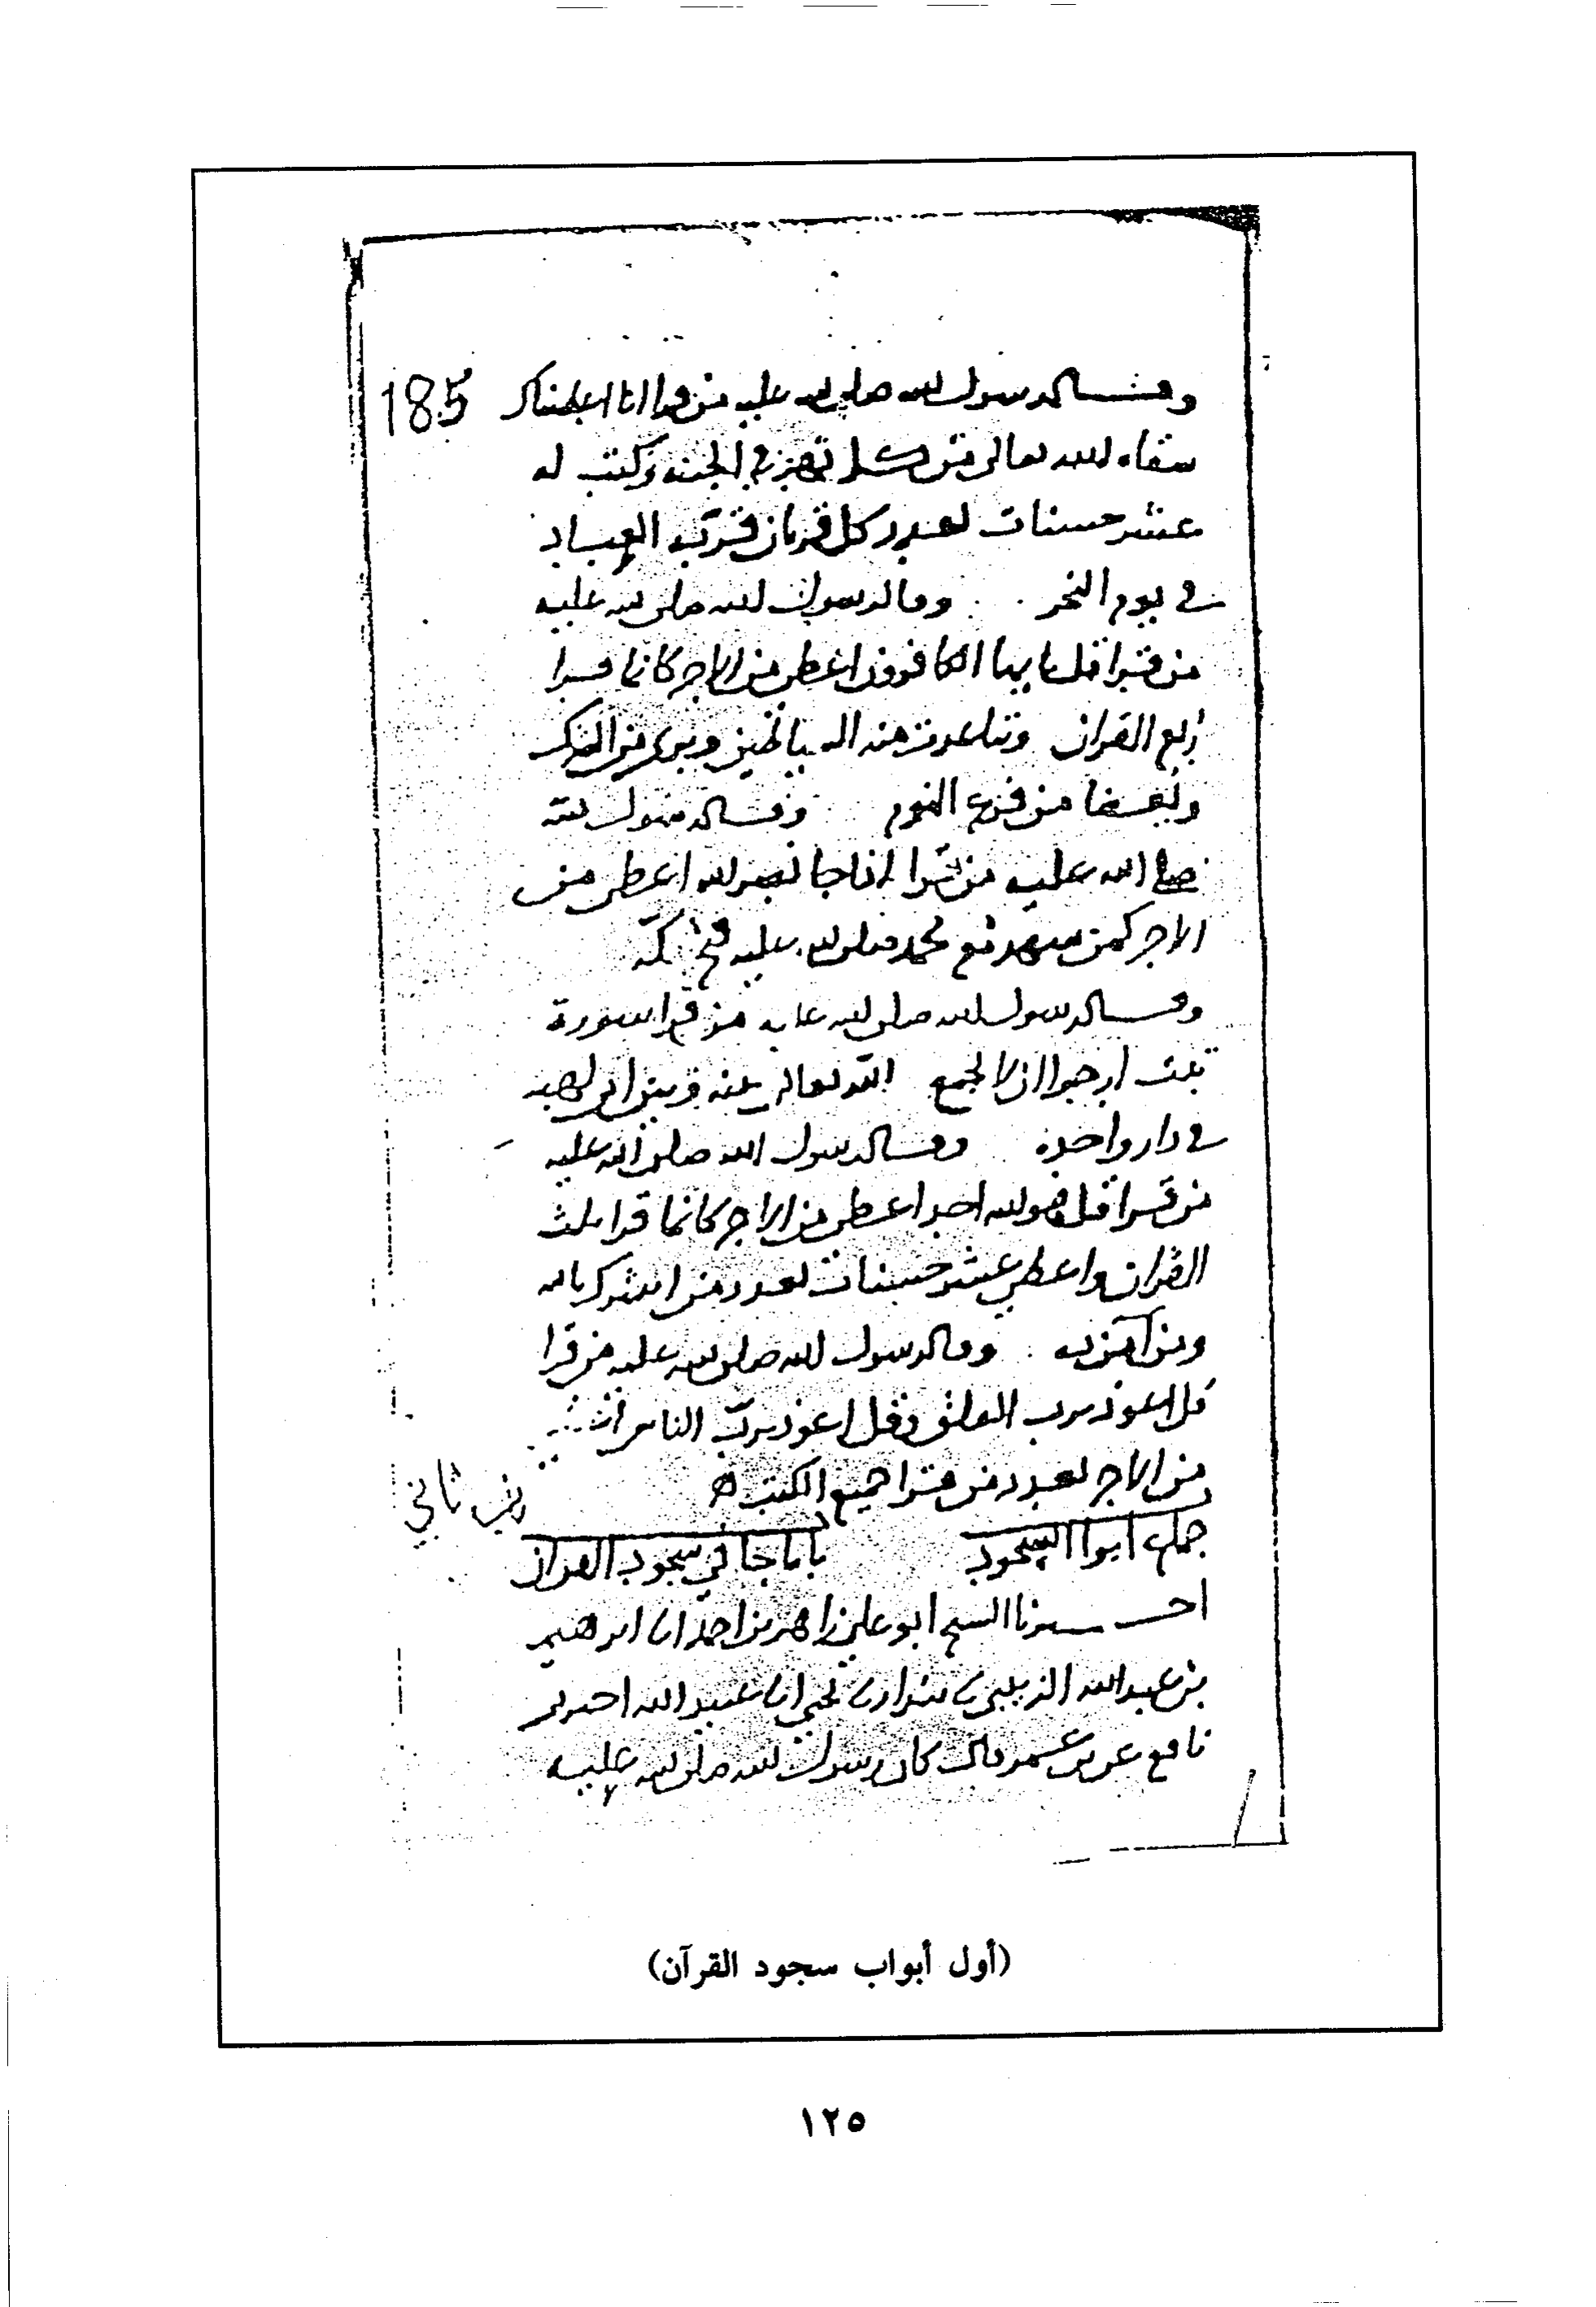 وقال رسول الله صلى الله عليه من قرا انا اعطيناك 185
سقاه الله تعالى من كل نهر في الجنه وكتب له
عشر حسنات بعدد كل قربان قربه العباد
في يوم النحر وقال رسول الله صلى الله عليه
من قرا قل يايها الكافرون اعطي من الاجر كانما قرا
ربع القران وتباعدت منه الشياطين وبرى من الشرك
من فزع اليوم وقال رسول الله
صلى الله عليه من قرا اذا جا نصر الله اعطي من
الاجر كمن شهد مع محمد صلى الله عليه فتح مكة
وقال رسول الله صلى الله عليه من قرا سورة
تبت ارجوا ان لا يجمع الله تعالى بينه وبين ابي لهب
في دار واحده وقال رسول الله صلى الله عليه
من قرا قل هو الله احد اعطي من الاجر كانما قرا ثلث
القران واعطي عشر حسنات بعدد من اشرك بالله
ومن امن به وقال رسول الله صلى الله عليه من قرا
قل اعوذ برب الفلق وقل اعوذ برب الناس
من الاجر بعدد من قرا جميع الكتب
ثاني
جماع ابوا السجود باب ما جا في سجود القران
اخبرنا الشيخ ابو علي زاهر بن احمد انا ابرهيم
بن عبد الله الزبيبي نا بندار نا يحيى انا عبيد الله اخبرني
نافع عن بن عمر قال كان رسول الله صلى الله عليه
(أول أبواب سجود القرآن)
١٢٥